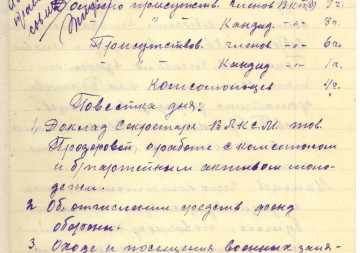 Должно присутств. членов ВКП(б) 9ч.
Кандид. -"- 7ч.
Присутствов. членов -"- 6ч.
Кандид -"- 1ч.
Комсомольцев 4ч.
Повестка дня:
1. Доклад Секретаря ВЛКСМ тов.
Прозоровой, о работе с комсомолом
и б/партейным активом моло-
дежи.
2. Об отчислении средств фонд
обороны.
3. О ходе и посещения военных заня-